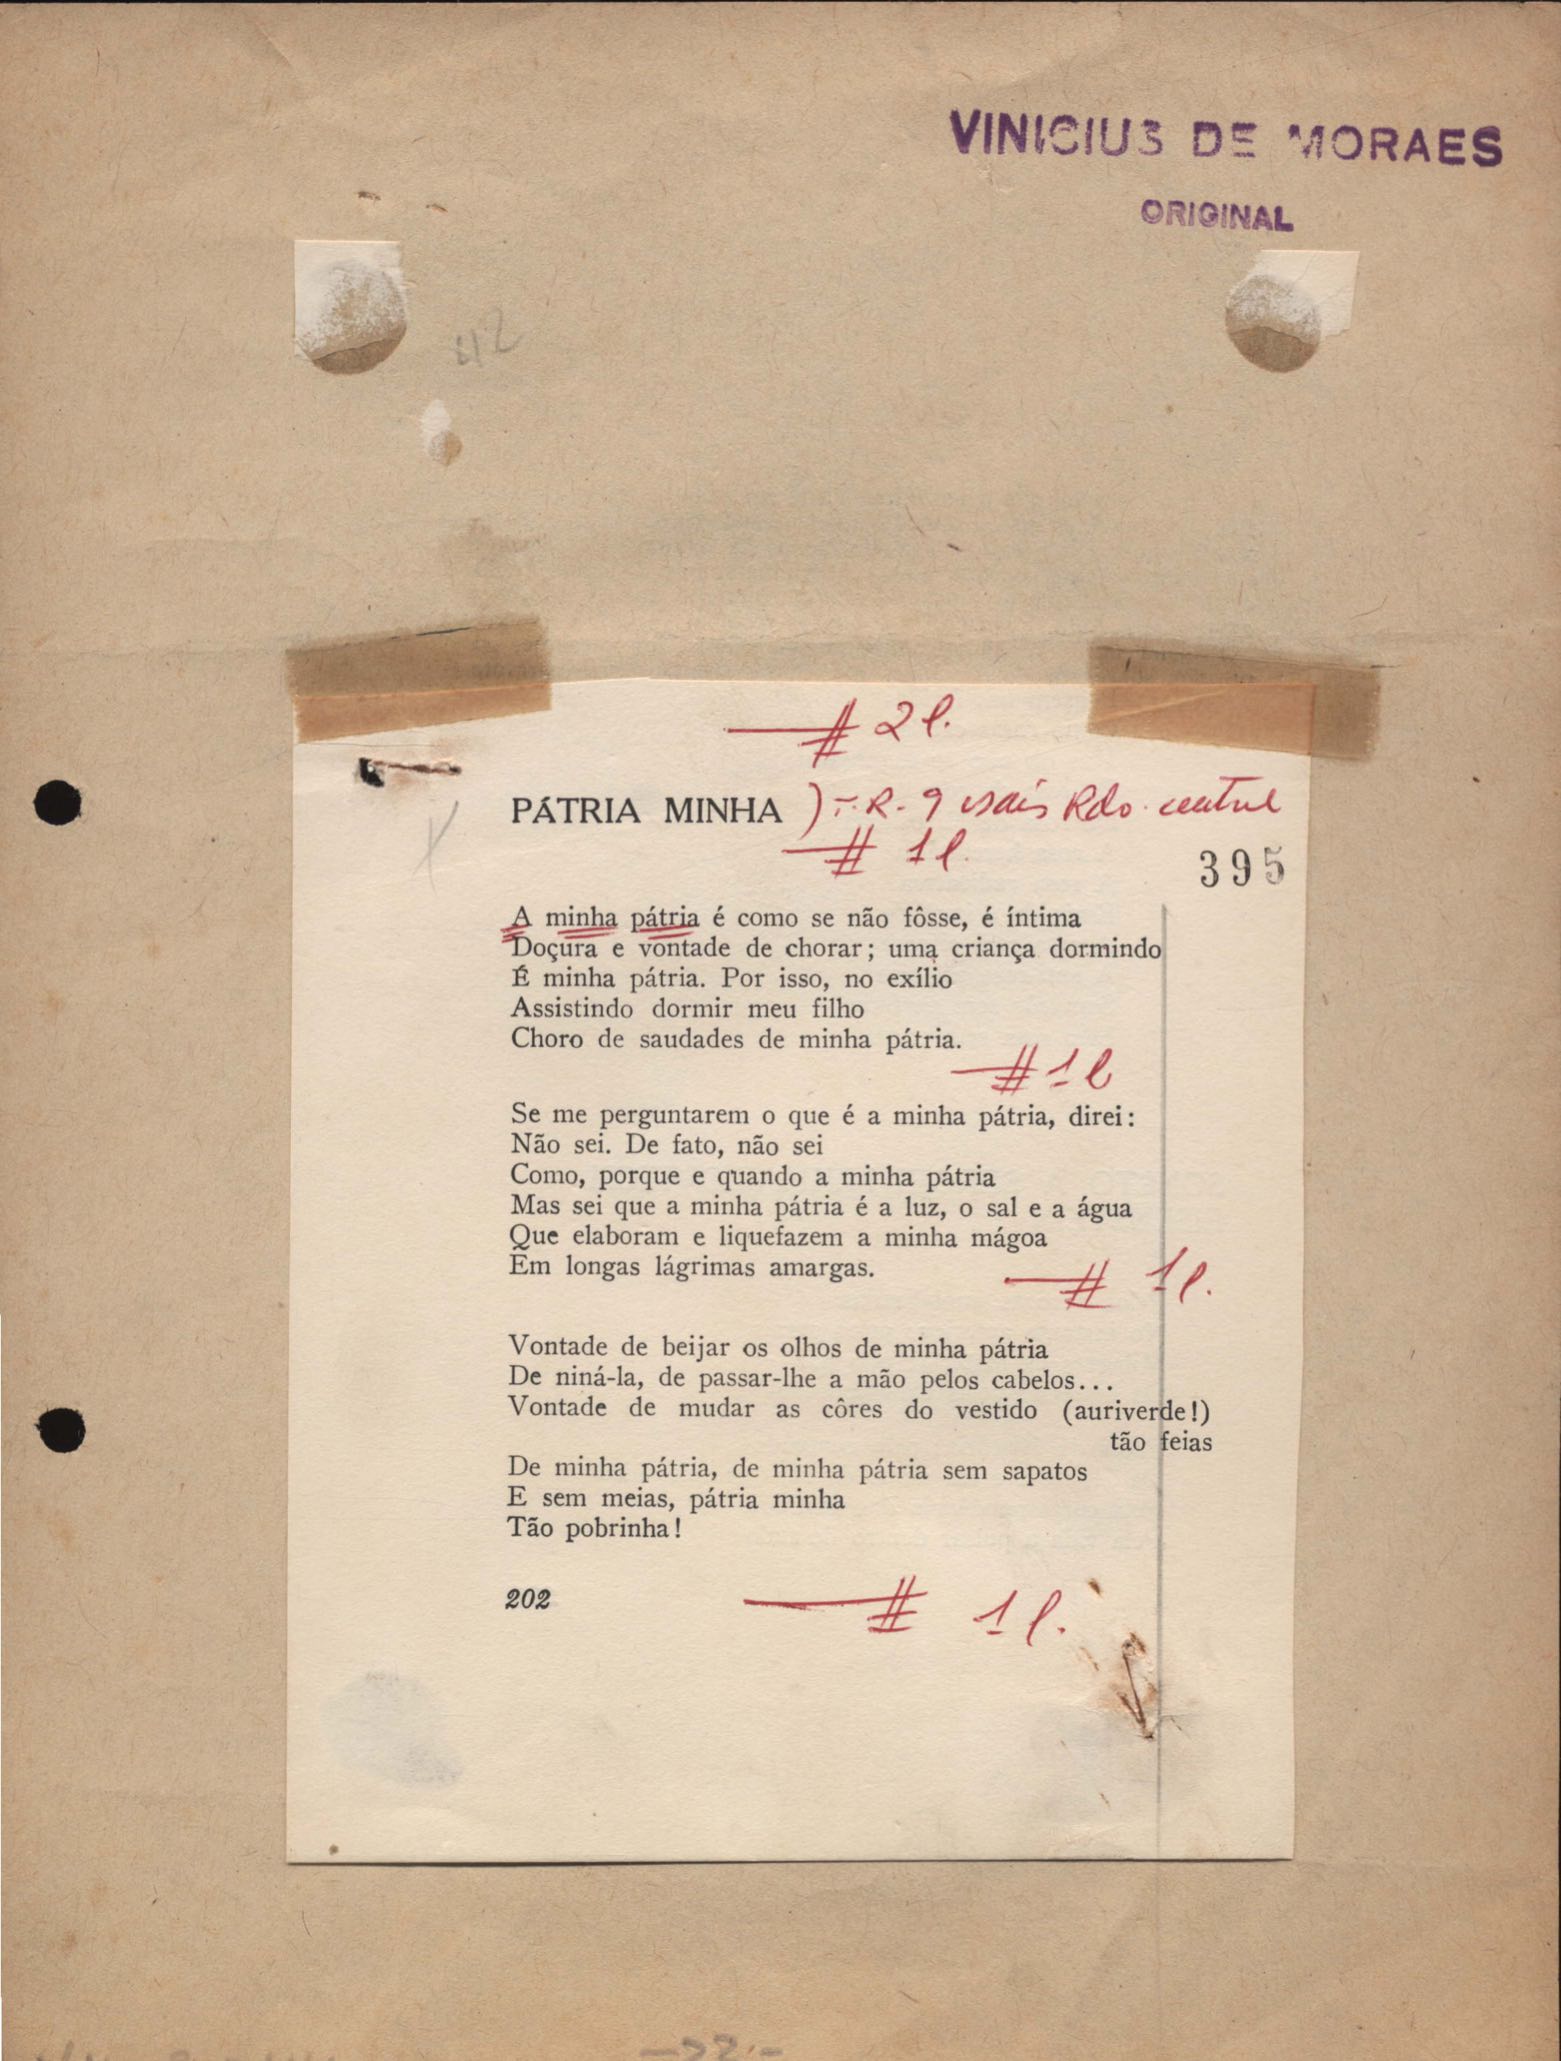 VINICIUS DE MORAES
ORIGINAL
42
# 2 l.
PÁTRIA MINHA
# 1 l.
395
A minha pátria é como se não fôsse, é íntima
Doçura e vontade de chorar; uma criança dormindo
É minha pátria. Por isso, no exílio
Assistindo dormir meu filho
Choro de saudades de minha pátria.
# 1 l
Se me perguntarem o que é a minha pátria, direi:
Não sei. De fato, não sei
Como, porque e quando a minha pátria
Mas sei que a minha pátria é a luz, o sal e a água
Que elaboram e liquefazem a minha mágoa
Em longas lágrimas amargas.
# 1 l.
Vontade de beijar os olhos de minha pátria
De niná-la, de passar-lhe a mão pelos cabelos...
Vontade de mudar as côres do vestido (auriverde!)
tão feias
De minha pátria, de minha pátria sem sapatos
E sem meias, pátria minha
Tão pobrinha!
202
# 1 l.